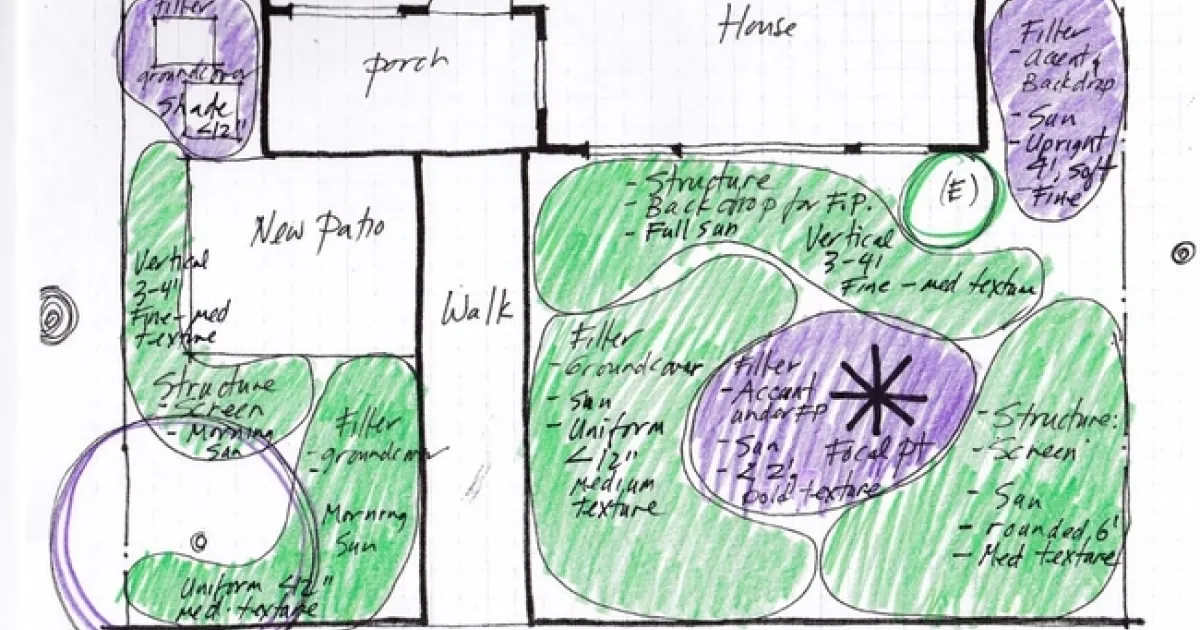 Filter
groundcover
Shade
<12"
porch
House
Filter
- accent,
Backdrop
- Sun
- Upright
4', soft
- Fine
New Patio
Walk
Vertical
3-4'
Fine-med
texture
Structure
- Screen
- Morning
Sun
Filter
- groundcover
-
Morning
Sun
Uniform <12"
med. texture
- Structure
- Backdrop for F.P.
- Full sun
Vertical
3-4'
Fine - med texture
(E)
Filter
- Groundcover
- Sun
- Uniform
<12"
medium
texture
Filter
- Accent
under FP
- Sun
- < 2',
bold texture
Focal pt
- Structure:
- Screen
- Sun
- rounded, 6'
- Med texture